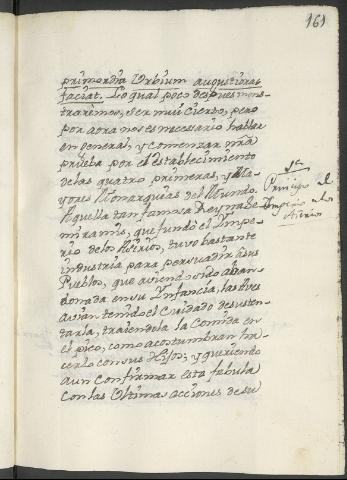 161
primordia Urbium augustiora
faciat. Lo qual poco despues mons-
traremos, ser mui cierto, pero
por aora nos es necessario hablar
en general, y comenzar nra
prueba por el establecimiento
de las quatro primeras, y Ma-
yores Monarquias del Mundo.
Aquella tan famosa Reyna Se-
miramis, que fundó el Impe-
rio de los Asirios, tuvo bastante
industria para persuadir à sus
Pueblos, que aviendo sido aban-
donada en su Infancia, las Aves
avian tenido el cuidado de susten-
tarla, trayendola la Comida en
el pico, como acostumbran ha-
cerlo con sus Hijos; y queriendo
aun confirmar esta fabula
con las Ultimas acciones de su
Principio del
Imperio de los
Asirios